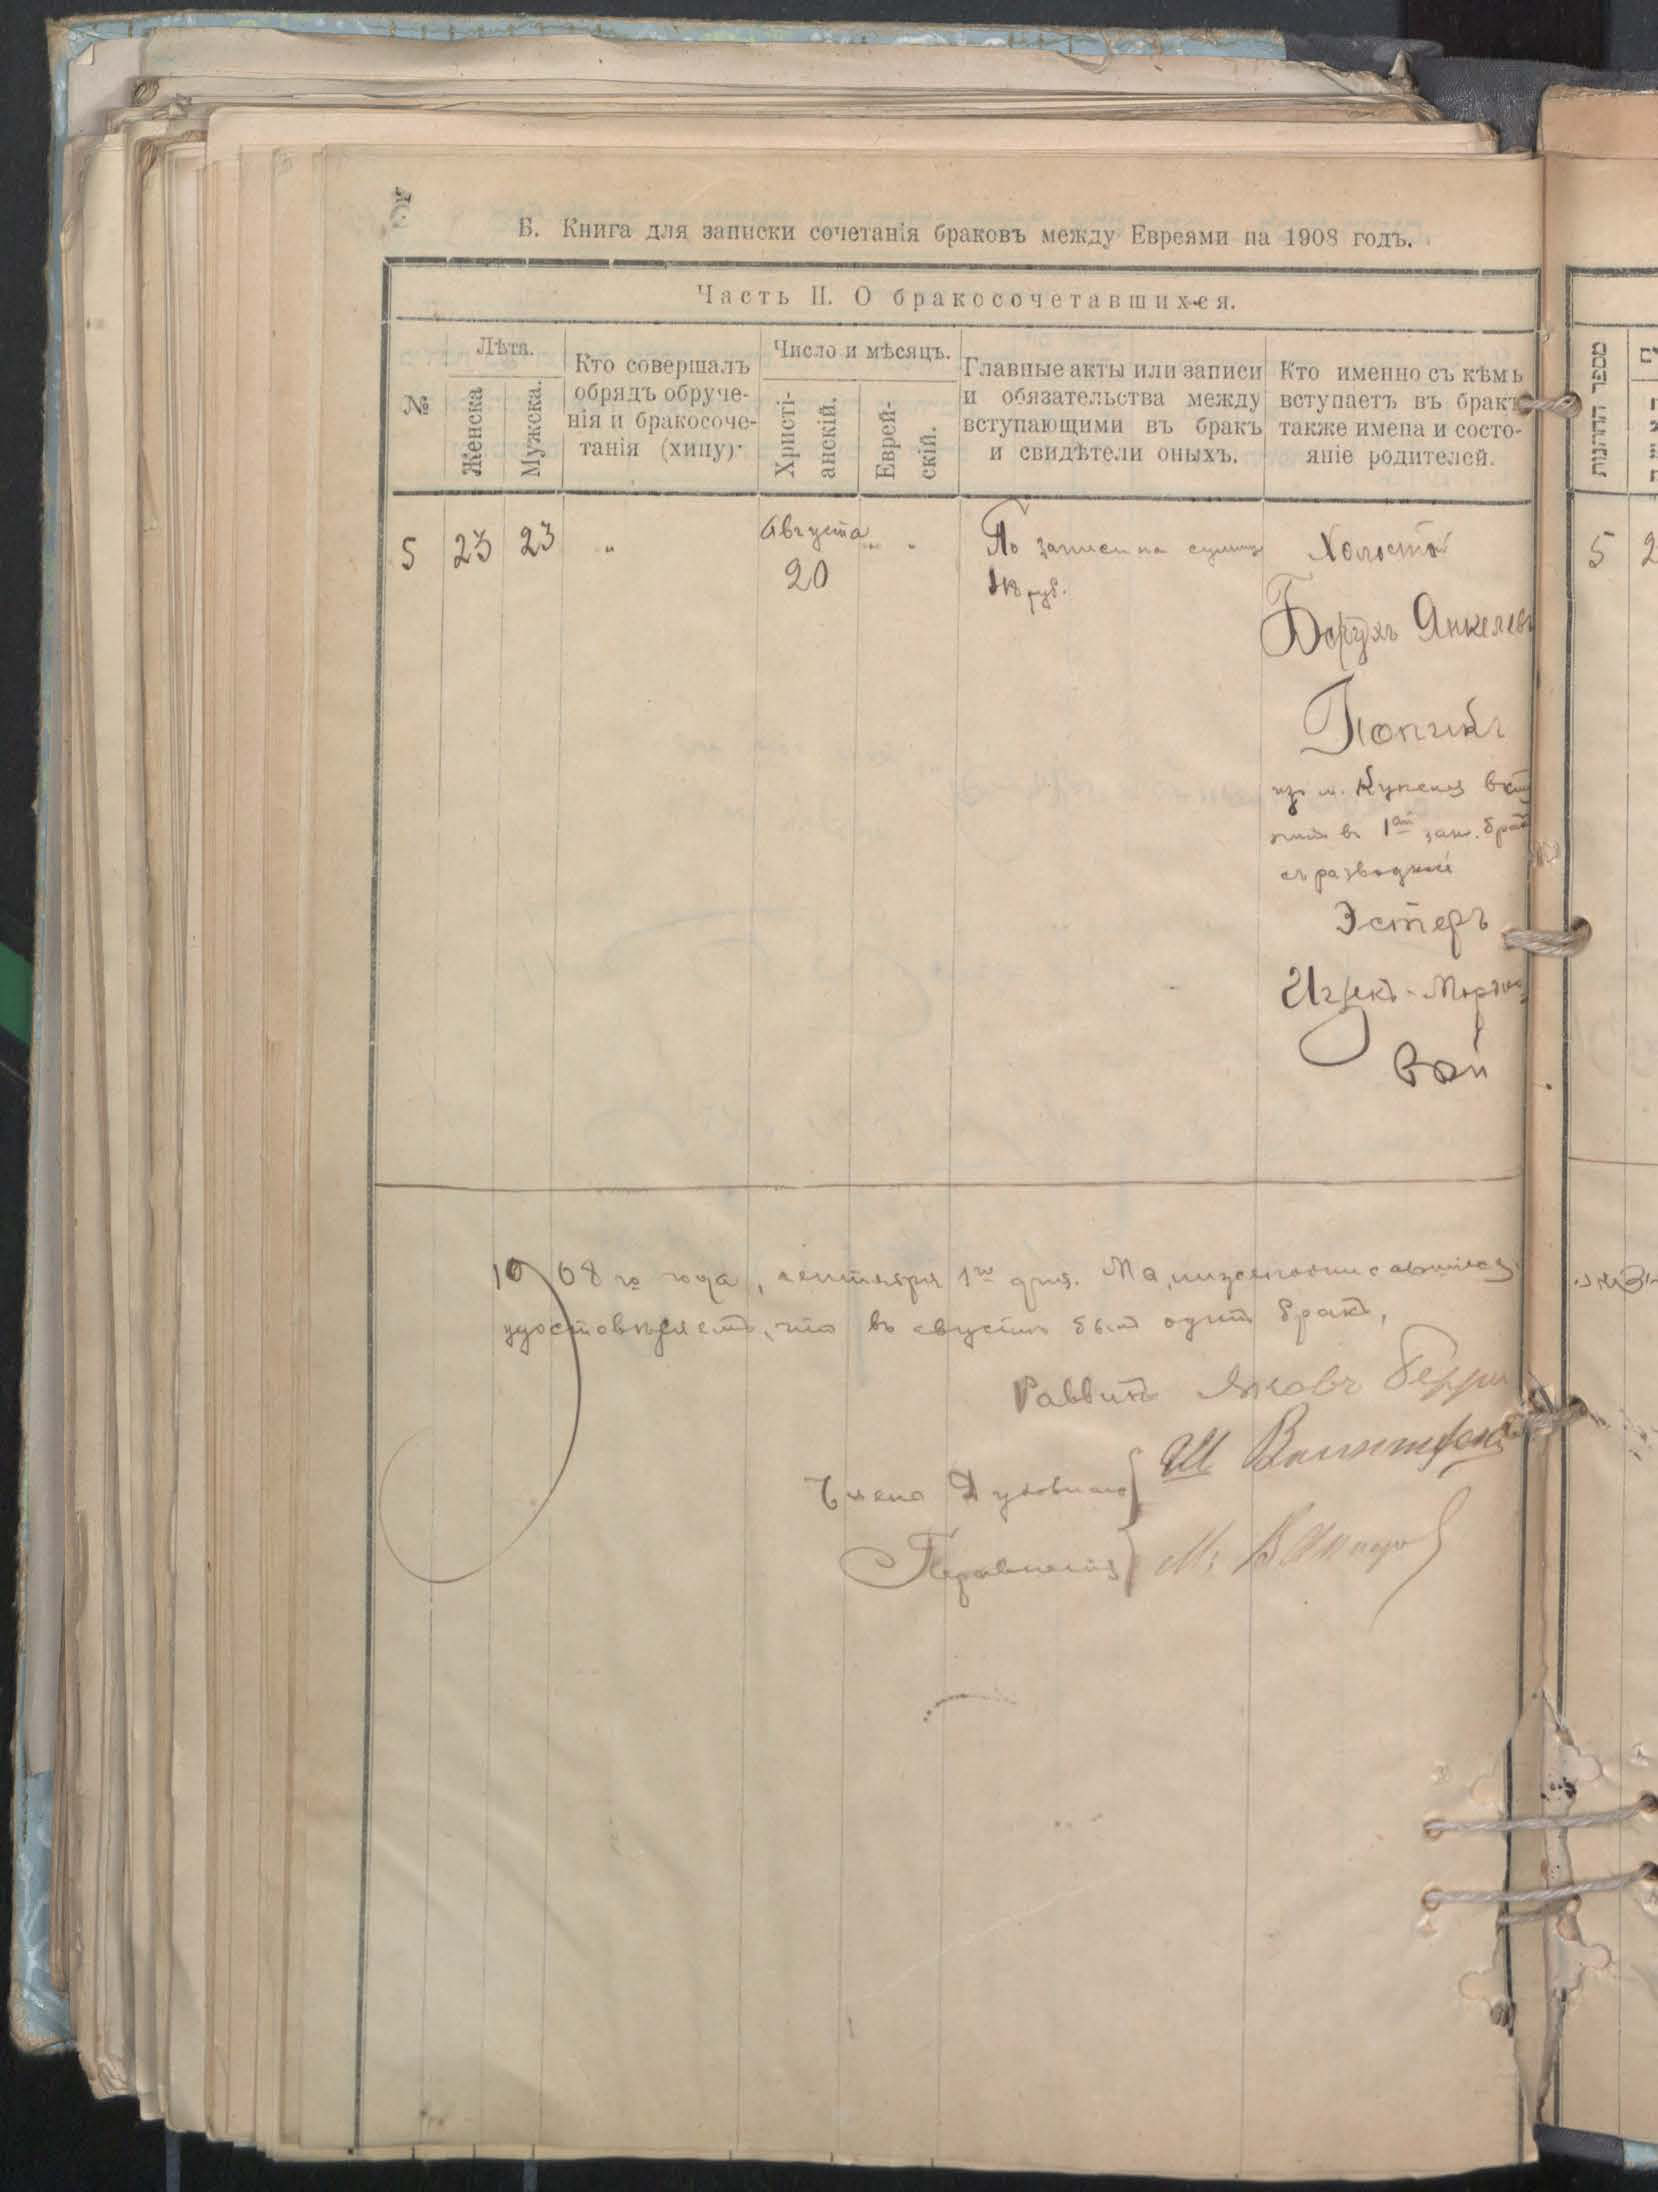 Б. Книга для записки сочетанія браковъ между Евреями на 1908 годъ.
Часть II. О бракосочетавшихся.
№
Лѣта.
Женска
Мужска.
Кто совершалъ
обрядъ обруче-
нія и бракосоче-
танія (хипу).
Число и мѣсяцъ.
Христі-
анскій.
Еврей-
скій.
Главные акты или записи
и обязательства между
вступающими въ бракъ
и свидѣтели оныхъ.
Кто именно съ кѣмъ
вступаетъ въ бракъ
также имена и состо-
яніе родителей.
5 23 23 „ Августа „ „ По записи на сумму Холостой
20 руб.
Борухъ Янкелев
Попикъ
изъ м. Купеля
въ 1ый зак. брак
съ разводной
Эстеръ
Ицекъ-Мор
вой
1908 го года, сентября 1го дня. Мы, нижеподписавшіеся
удостовѣряемъ, что въ августѣ былъ одинъ бракъ,
Раввинъ
Члены Духовнаго Ш.
Правленія М.
מספר החתונות
5 2